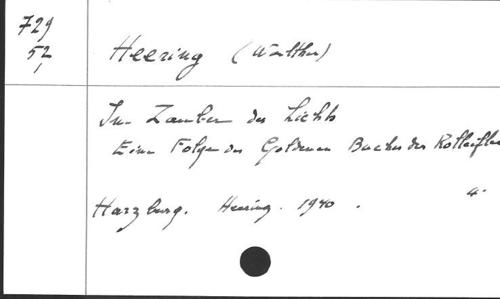 729
52,
Heering (Walther)
Im Zauber des Lichts
Eine Folge des Goldenen Buches der Rolleiflex
Harzburg. Heering. 1940. 4°